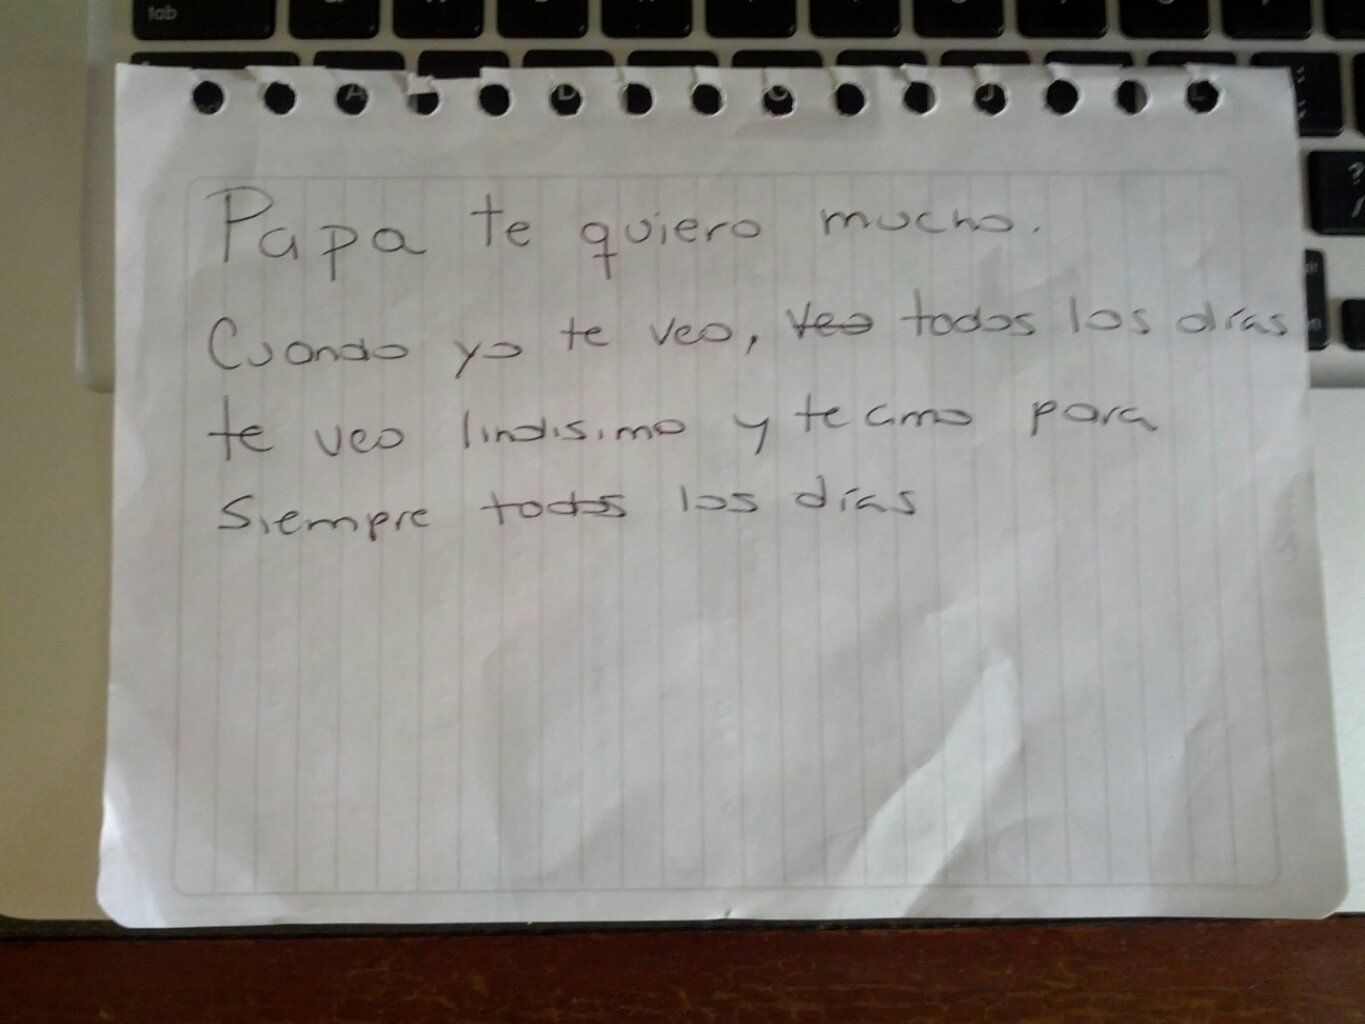 tab
Papa te quiero mucho.
Cuando yo te veo, veo todos los días
te veo lindisimo y te amo para
Siempre todos los días